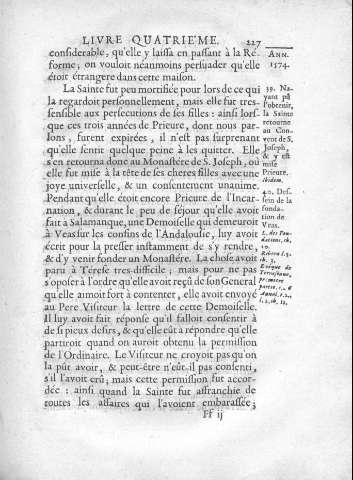 LIVRE QUATRIE'ME. 227
considerable, qu'elle y laissa en passant à la Re-
forme; on vouloit néanmoins persuader qu'elle
étoit étrangere dans cette maison.
ANN.
1574.
La Sainte fut peu mortifiée pour lors de ce qui
la regardoit personnellement, mais elle fut tres-
sensible aux persecutions de ses filles: ainsi lors-
que ces trois années de Prieure, dont nous par-
lons, furent expirées, il n'est pas surprenant
qu'elle sentit quelque peine à les quitter. Elle
s'en retourna donc au Monastére de S. Joseph, où
elle fut mise à la tête de ses cheres filles avec une
joye universelle, & un consentement unanime.
Pendant qu'elle étoit encore Prieure de l'Incar-
nation, & durant le peu de séjour qu'elle avoit
fait à Salamanque, une Demoiselle qui demeuroit
à Veas sur les confins de l'Andalousie, luy avoit
écrit pour la presser instamment de s'y rendre,
& d'y venir fonder un Monastére. La chose avoit
paru à Térese tres-difficile; mais pour ne pas
s'oposer à l'ordre qu'elle avoit reçû de son General
qu'elle aimoit fort à contenter, elle avoit envoyé
au Pere Visiteur la lettre de cette Demoiselle.
Il luy avoit fait réponse qu'il falloit consentir à
de si pieux desirs, & qu'elle eût à répondre qu'elle
partiroit quand on auroit obtenu la permission
de l'Ordinaire. Le Visiteur ne croyoit pas qu'on
la pût avoir, & peut-être n'eût-il pas consenti,
s'il l'avoit crû; mais cette permission fut accor-
dée: ainsi quand la Sainte fut affranchie de
toutes les affaires qui l'avoient embarassée;
39. Na-
yant pû
l'obtenir,
la Sainte
retourne
au Con-
vent de S.
Joseph,
& y est
mise
Prieure.
Ibidem.
40. Des-
sein de la
fonda-
tion de
Veas.
L. des Fon-
dations, ch.
Ribera l. 3.
ch. 3.
Evêque de
Tarassone,
premiere
partie.
Ff ij